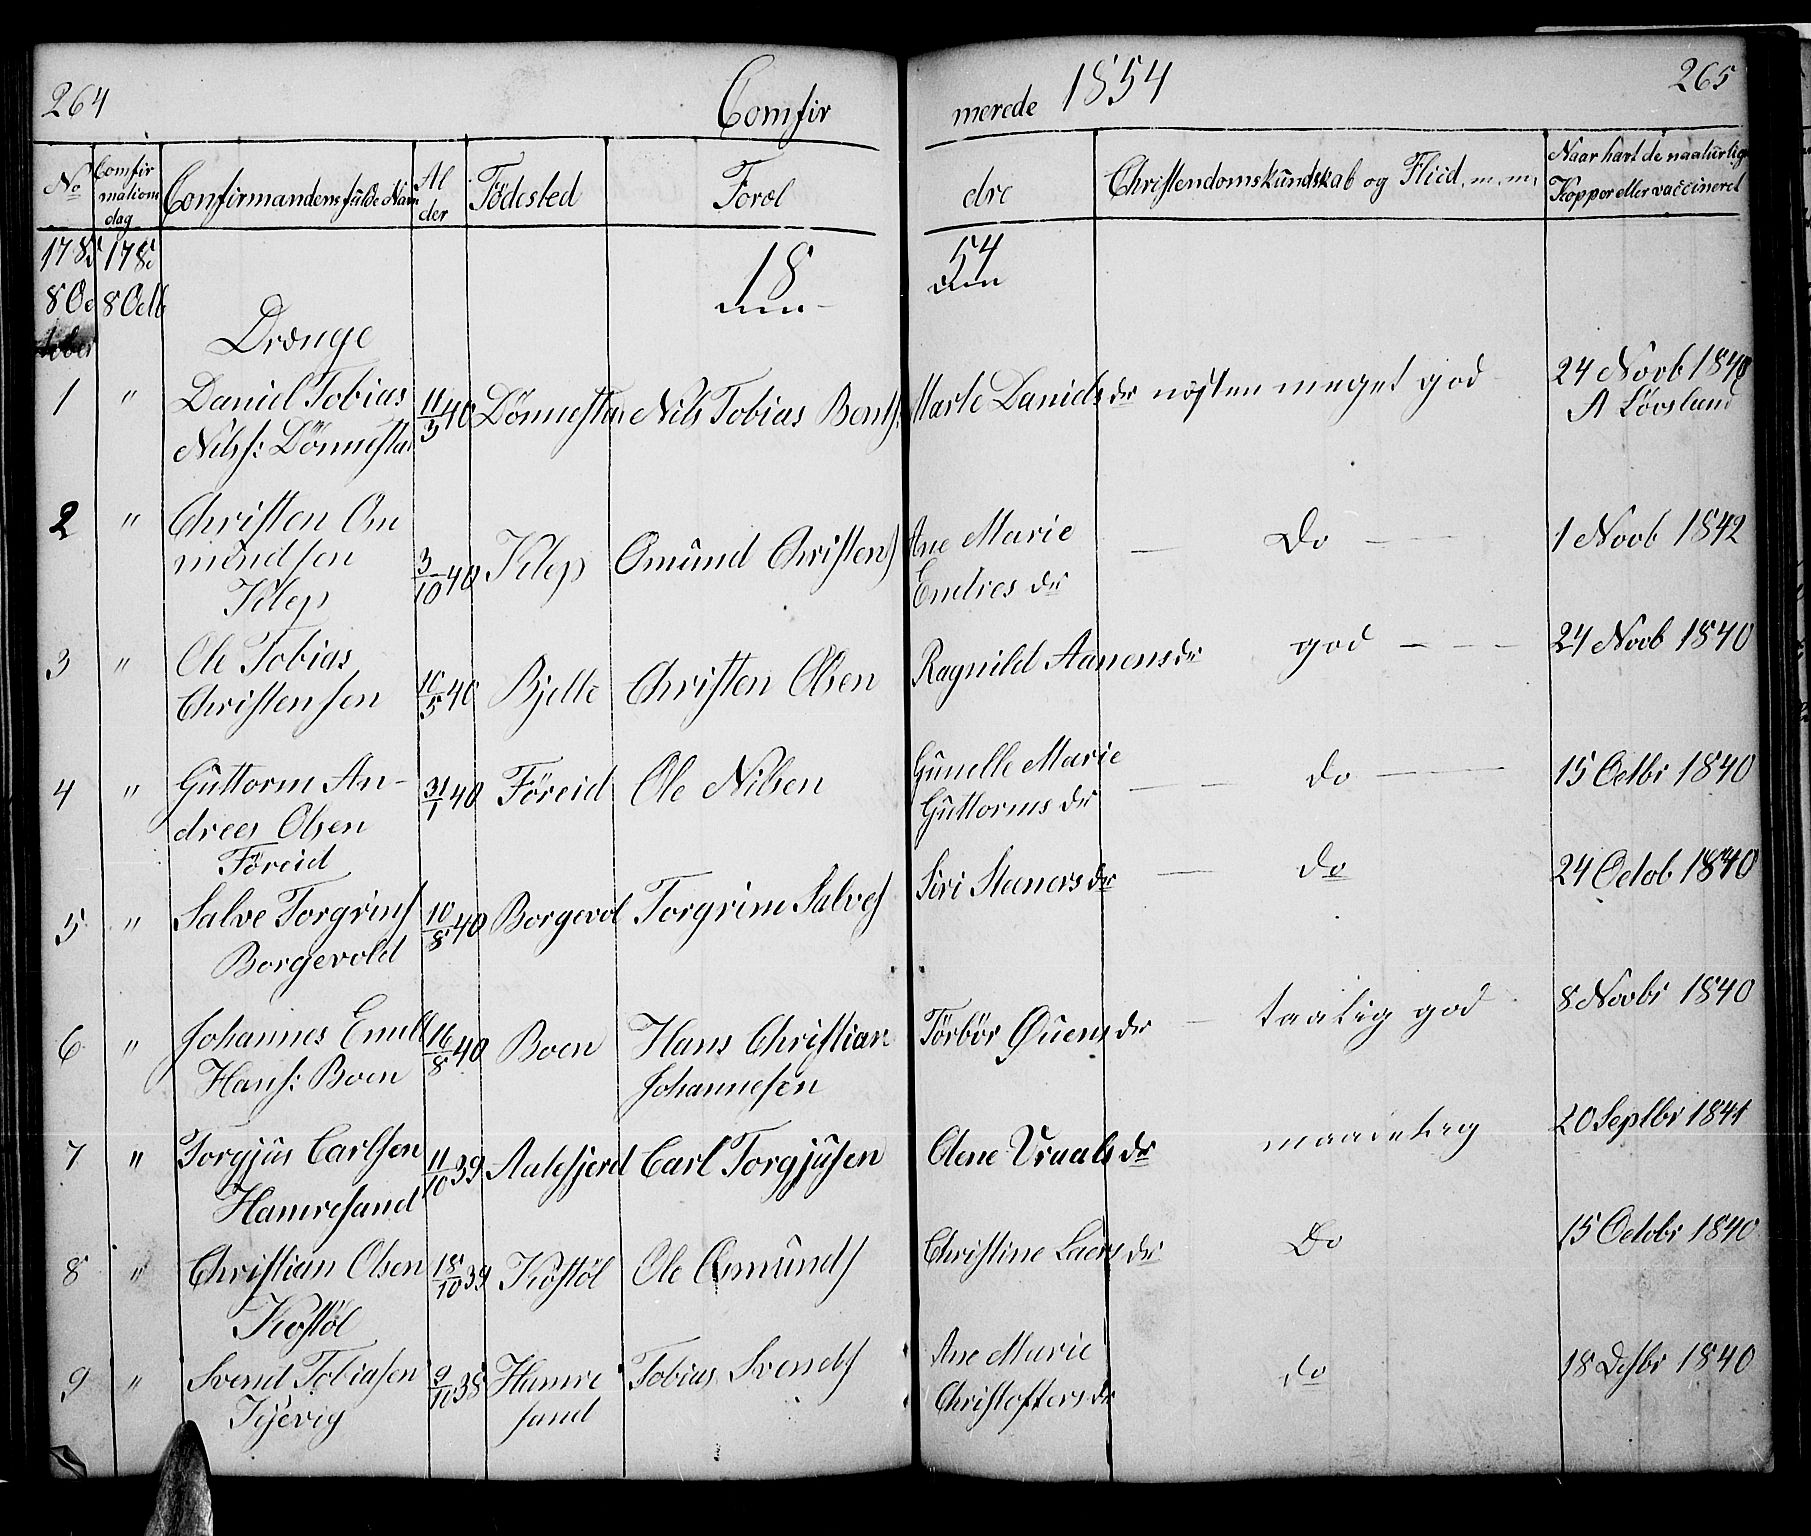 264 Comfir merede 1854 265
No Comfir mations dag Confirmandens fulde Navn Al der Födested Foræl dre Christendomskundskab og Fliid. m. m. Naar havt de naaturlige Kopper eller vaccineret
178s 178s 18 54
8 Oc tober 8 Octb
Drenge
1 " Daniel Tobias Nilss: Dönnestad 11/3 40 Dönnestad Nils Tobias Bents: Marte Daniels dr nøsten meget god 24 Novb 1840 A Lövsland
2 " Christen Om mundsen Kilep 3/10 40 Kilep Omund Christens Ane Marie Endres dr — Do — 1 Novb 1842
3 " Ole Tobias Christensen 10/5 40 Bjelle Christen Olsen Ragnild Aanens dr god — — — 24 Novb 1840
4 " Guttorm An- drees Olsen Föreid 31/1 40 Föreid Ole Nilsen Gunelle Marie Guttorms dr — do — 15 Octbr 1840
5 " Salve Torgrims Borgevold 10/8 40 Borgevol Torgrim Salves Siri Steners dr — do 24 Octob 1840
6 " Johannes Emill Hans: Boen 16/8 40 Boen Hans Christian Johannesen Törbör dr — taalig god 8 Novbr 1840
7 " Torgjus Carlsen Hamresand 11/10 39 Aalefjerd Carl Torgjusen Olene Vraals dr maadelig 20 Septbr 1841
8 " Christian Olsen Kostöl 18/10 39 Kostöl Ole Osmunds Christine Laers dr Do 15 Octobr 1840
9 " Svend Tobiasen Kjevig 9/11 38 Hamre sand Tobias Svends Ane Marie Christoffers dr do 18 Desbr 1840